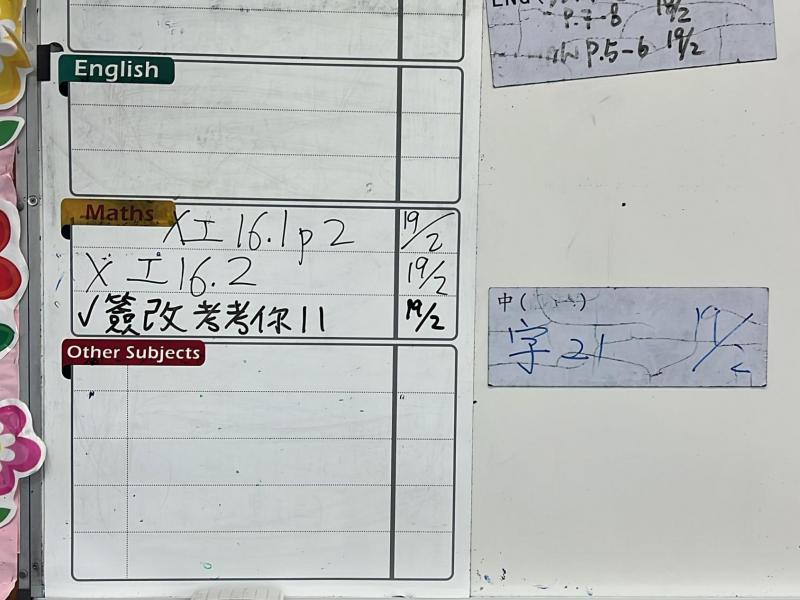 English
Maths
X 工 16.1 p 2 19/2
X 工 16.2 19/2
✓簽改考考你11 19/2
Other Subjects
P.7-8 19/2
P.5-6 19/2
中(
字 21 19/2